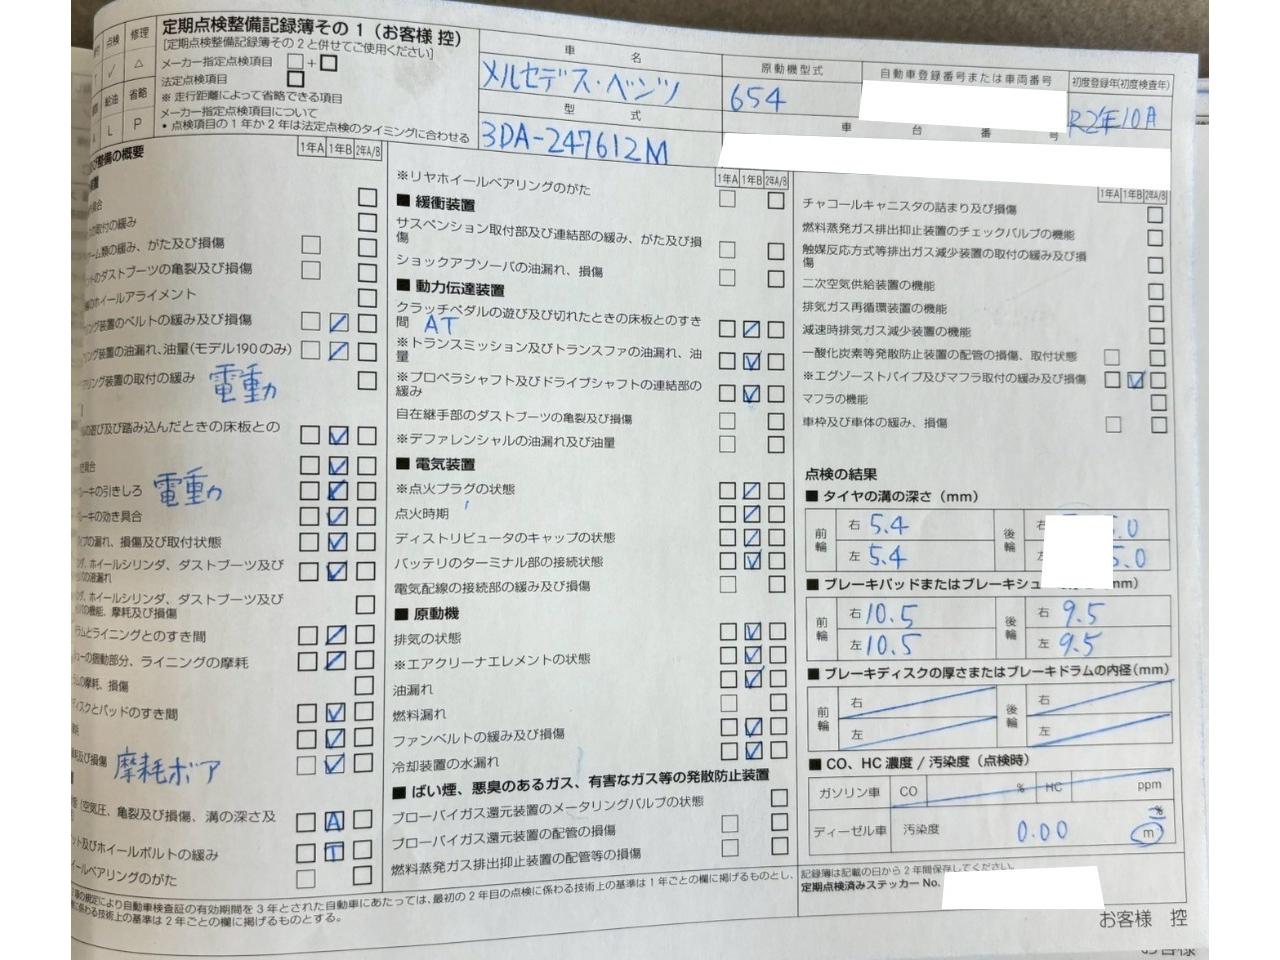 定期点検整備記録簿その1(お客様 控)
[定期点検整備記録簿その2と併せてご使用ください]
点検 修理
✓ △
給油 省略
L P
メーカー指定点検項目 □+□
法定点検項目 □
※ 走行距離によって省略できる項目
メーカー指定点検項目について
• 点検項目の1年か2年は法定点検のタイミングに合わせる
車 名
メルセデス・ベンツ
型 式
3DA-247612M
原動機型式
654
自動車登録番号または車両番号
初度登録年(初度検査年)
R2年10月
車 台 番 号
び整備の概要
1年A 1年B 2年A/B
具合
の取付の緩み
ーム類の緩み、がた及び損傷
ットのダストブーツの亀裂及び損傷
のホイールアライメント
リング装置のベルトの緩み及び損傷
リング装置の油漏れ、油量(モデル190のみ)
アリング装置の取付の緩み 電動
の遊び及び踏み込んだときの床板との
き具合
ーキの引きしろ 電動
ーキの効き具合
の漏れ、損傷及び取付状態
ホイールシリンダ、ダストブーツ及び
の液漏れ
ホイールシリンダ、ダストブーツ及び
の機能、摩耗及び損傷
ラムとライニングとのすき間
ューの摺動部分、ライニングの摩耗
ムの摩耗、損傷
ディスクとパッドのすき間
耗及び損傷 摩耗ボア
(空気圧、亀裂及び損傷、溝の深さ及 A
ット及びホイールボルトの緩み T
イールベアリングのがた
1年A 1年B 2年A/B
※リヤホイールベアリングのがた
■ 緩衝装置
サスペンション取付部及び連結部の緩み、がた及び損
傷
ショックアブソーバの油漏れ、損傷
■ 動力伝達装置
クラッチペダルの遊び及び切れたときの床板とのすき
間 AT
※トランスミッション及びトランスファの油漏れ、油
量
※プロペラシャフト及びドライブシャフトの連結部の
緩み
自在継手部のダストブーツの亀裂及び損傷
※デファレンシャルの油漏れ及び油量
■ 電気装置
※点火プラグの状態
点火時期
ディストリビュータのキャップの状態
バッテリのターミナル部の接続状態
電気配線の接続部の緩み及び損傷
■ 原動機
排気の状態
※エアクリーナエレメントの状態
油漏れ
燃料漏れ
ファンベルトの緩み及び損傷
冷却装置の水漏れ
■ ばい煙、悪臭のあるガス、有害なガス等の発散防止装置
ブローバイガス還元装置のメータリングバルブの状態
ブローバイガス還元装置の配管の損傷
燃料蒸発ガス排出抑止装置の配管等の損傷
1年A 1年B 2年A/B
チャコールキャニスタの詰まり及び損傷
燃料蒸発ガス排出抑止装置のチェックバルブの機能
触媒反応方式等排出ガス減少装置の取付の緩み及び損
傷
二次空気供給装置の機能
排気ガス再循環装置の機能
減速時排気ガス減少装置の機能
一酸化炭素等発散防止装置の配管の損傷、取付状態
※エグゾーストパイプ及びマフラ取付の緩み及び損傷
マフラの機能
車枠及び車体の緩み、損傷
点検の結果
■ タイヤの溝の深さ(mm)
前輪 右 5.4 後輪 右 5.0
左 5.4 左 5.0
■ ブレーキパッドまたはブレーキシュー mm)
前輪 右 10.5 後輪 右 9.5
左 10.5 左 9.5
■ ブレーキディスクの厚さまたはブレーキドラムの内径(mm)
前輪 右 後輪 右
左 左
■ CO、HC濃度 / 汚染度(点検時)
ガソリン車 CO % HC ppm
ディーゼル車 汚染度 0.00 % m
記録簿は記載の日から2年間保存してください。
定期点検済みステッカー No.
規定により自動車検査証の有効期間を3年とされた自動車にあたっては、最初の2年目の点検に係わる技術上の基準は1年ごとの欄に掲げるものとし、
に係わる技術上の基準は2年ごとの欄に掲げるものとする。
お客様 控
お客様